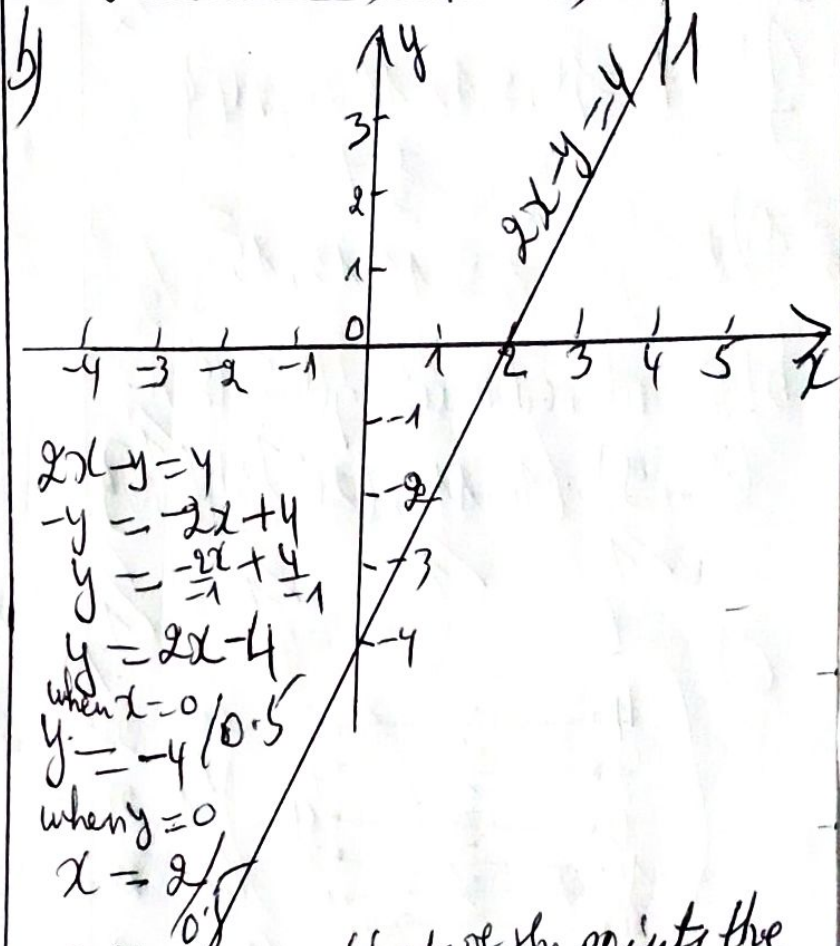 b)
y
/1
2x-y=4
3
2
1
0
-4 -3 -2 -1 1 2 3 4 5 x
-1
-2
-3
-4
2x-y=4
-y = -2x+4
y = -2x/-1 + 4/-1
y = 2x-4
when x=0
y = -4/0.5
when y=0
x = 2/
0.5
the points the